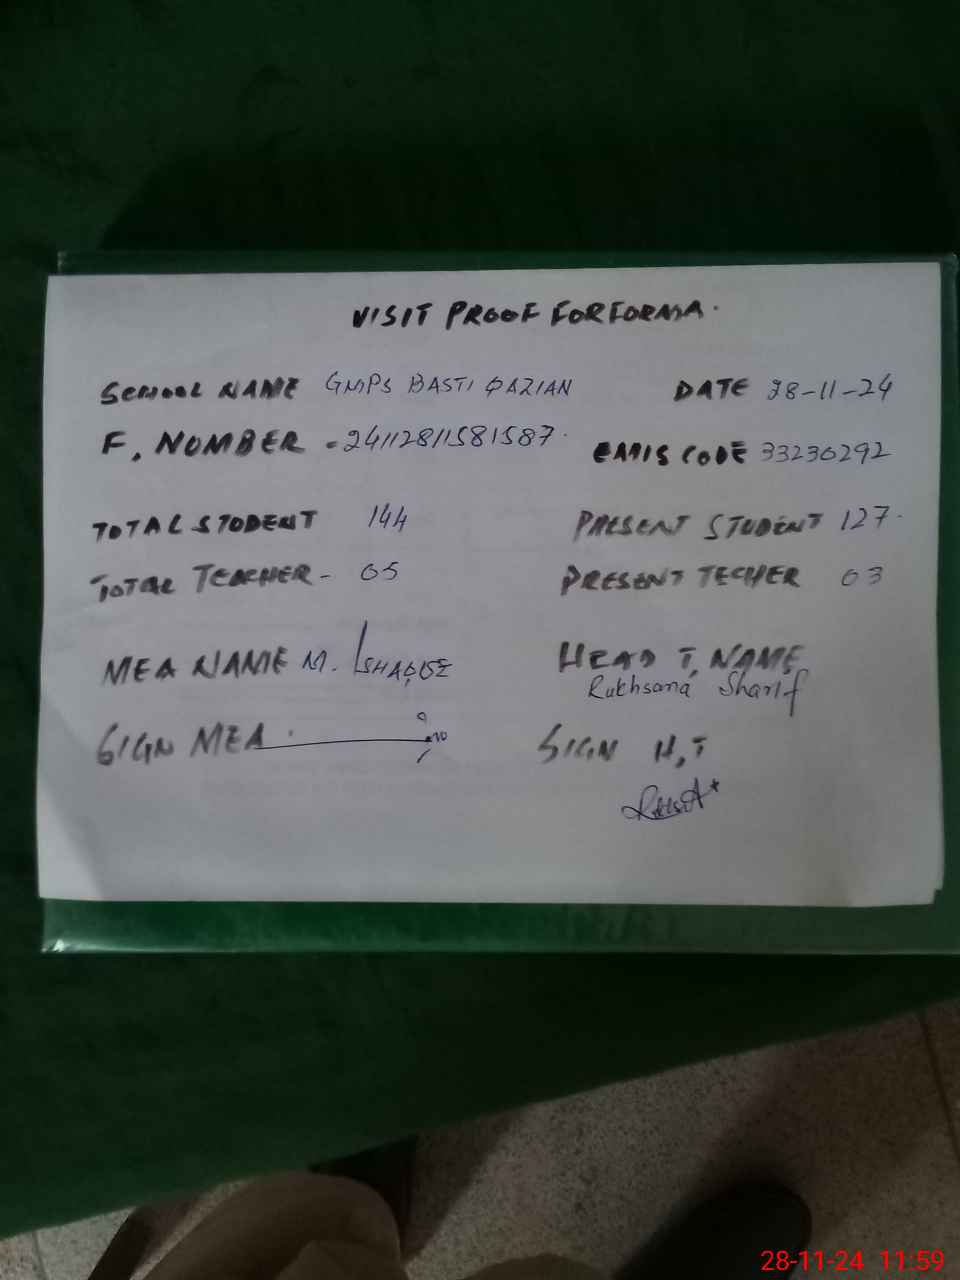 VISIT PROOF FORFORMA.
SCHOOL NAME GMPS BASTI QAZIAN DATE 28-11-24
F. NUMBER - 24112811581587. EMIS CODE 33230292
TOTAL STUDENT 144 PRESENT STUDENT 127.
TOTAL TEACHER - 05 PRESENT TECHER 03
MEA NAME M. HEAD T, NAME
Rukhsana Sharif
SIGN MEA. SIGN H,T
28-11-24 11:59